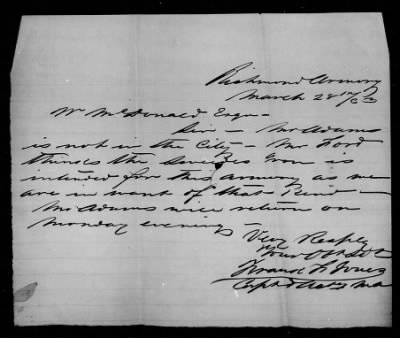 Richmond Armory
March 28th/63
Wm McDonald Esqr -
Sir - Mr Adams
is not in the City - Mr Ford
thinks the Iron is
intended for this armory as we
are in want of that kind -
Mr Adams will return on
Monday evening -
Very Respfy
Your Obt Svt
Frank F Jones
Capt &